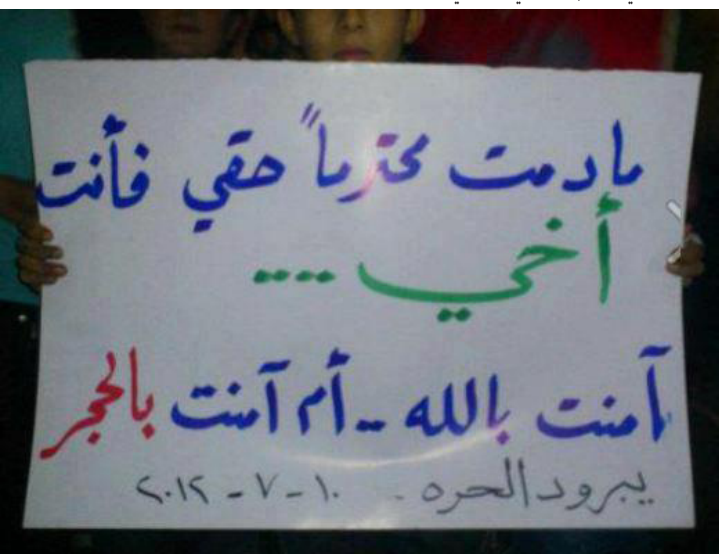 ما دمت محترماً حقي فأنت
أخي ....
آمنت بالله .. أم آمنت بالحجر
يبرود الحره - ١٠ - ٧ - ٢٠١٢